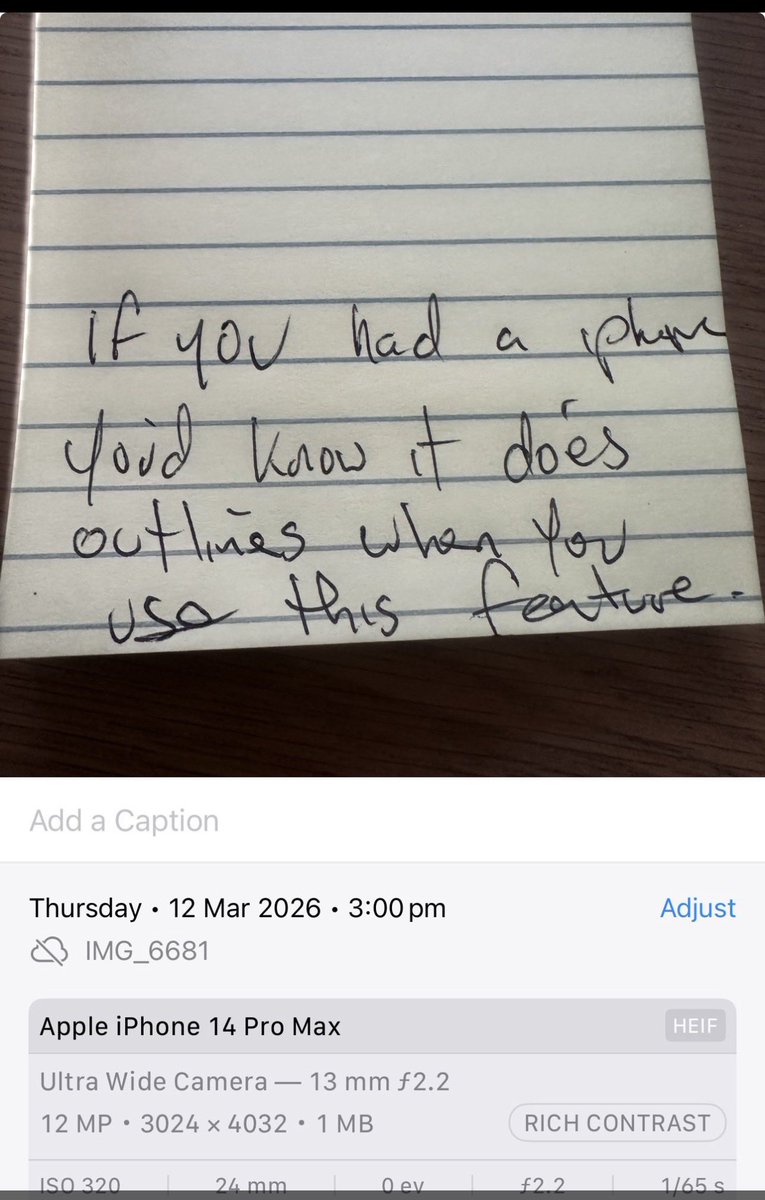 if you had a iphone
you'd know it does
outlines when you
use this feature.
Add a Caption
Thursday • 12 Mar 2026 • 3:00 pm
Adjust
IMG_6681
Apple iPhone 14 Pro Max
HEIF
Ultra Wide Camera — 13 mm ƒ2.2
12 MP • 3024 × 4032 • 1 MB
RICH CONTRAST
ISO 320
24 mm
0 ev
ƒ2.2
1/65 s